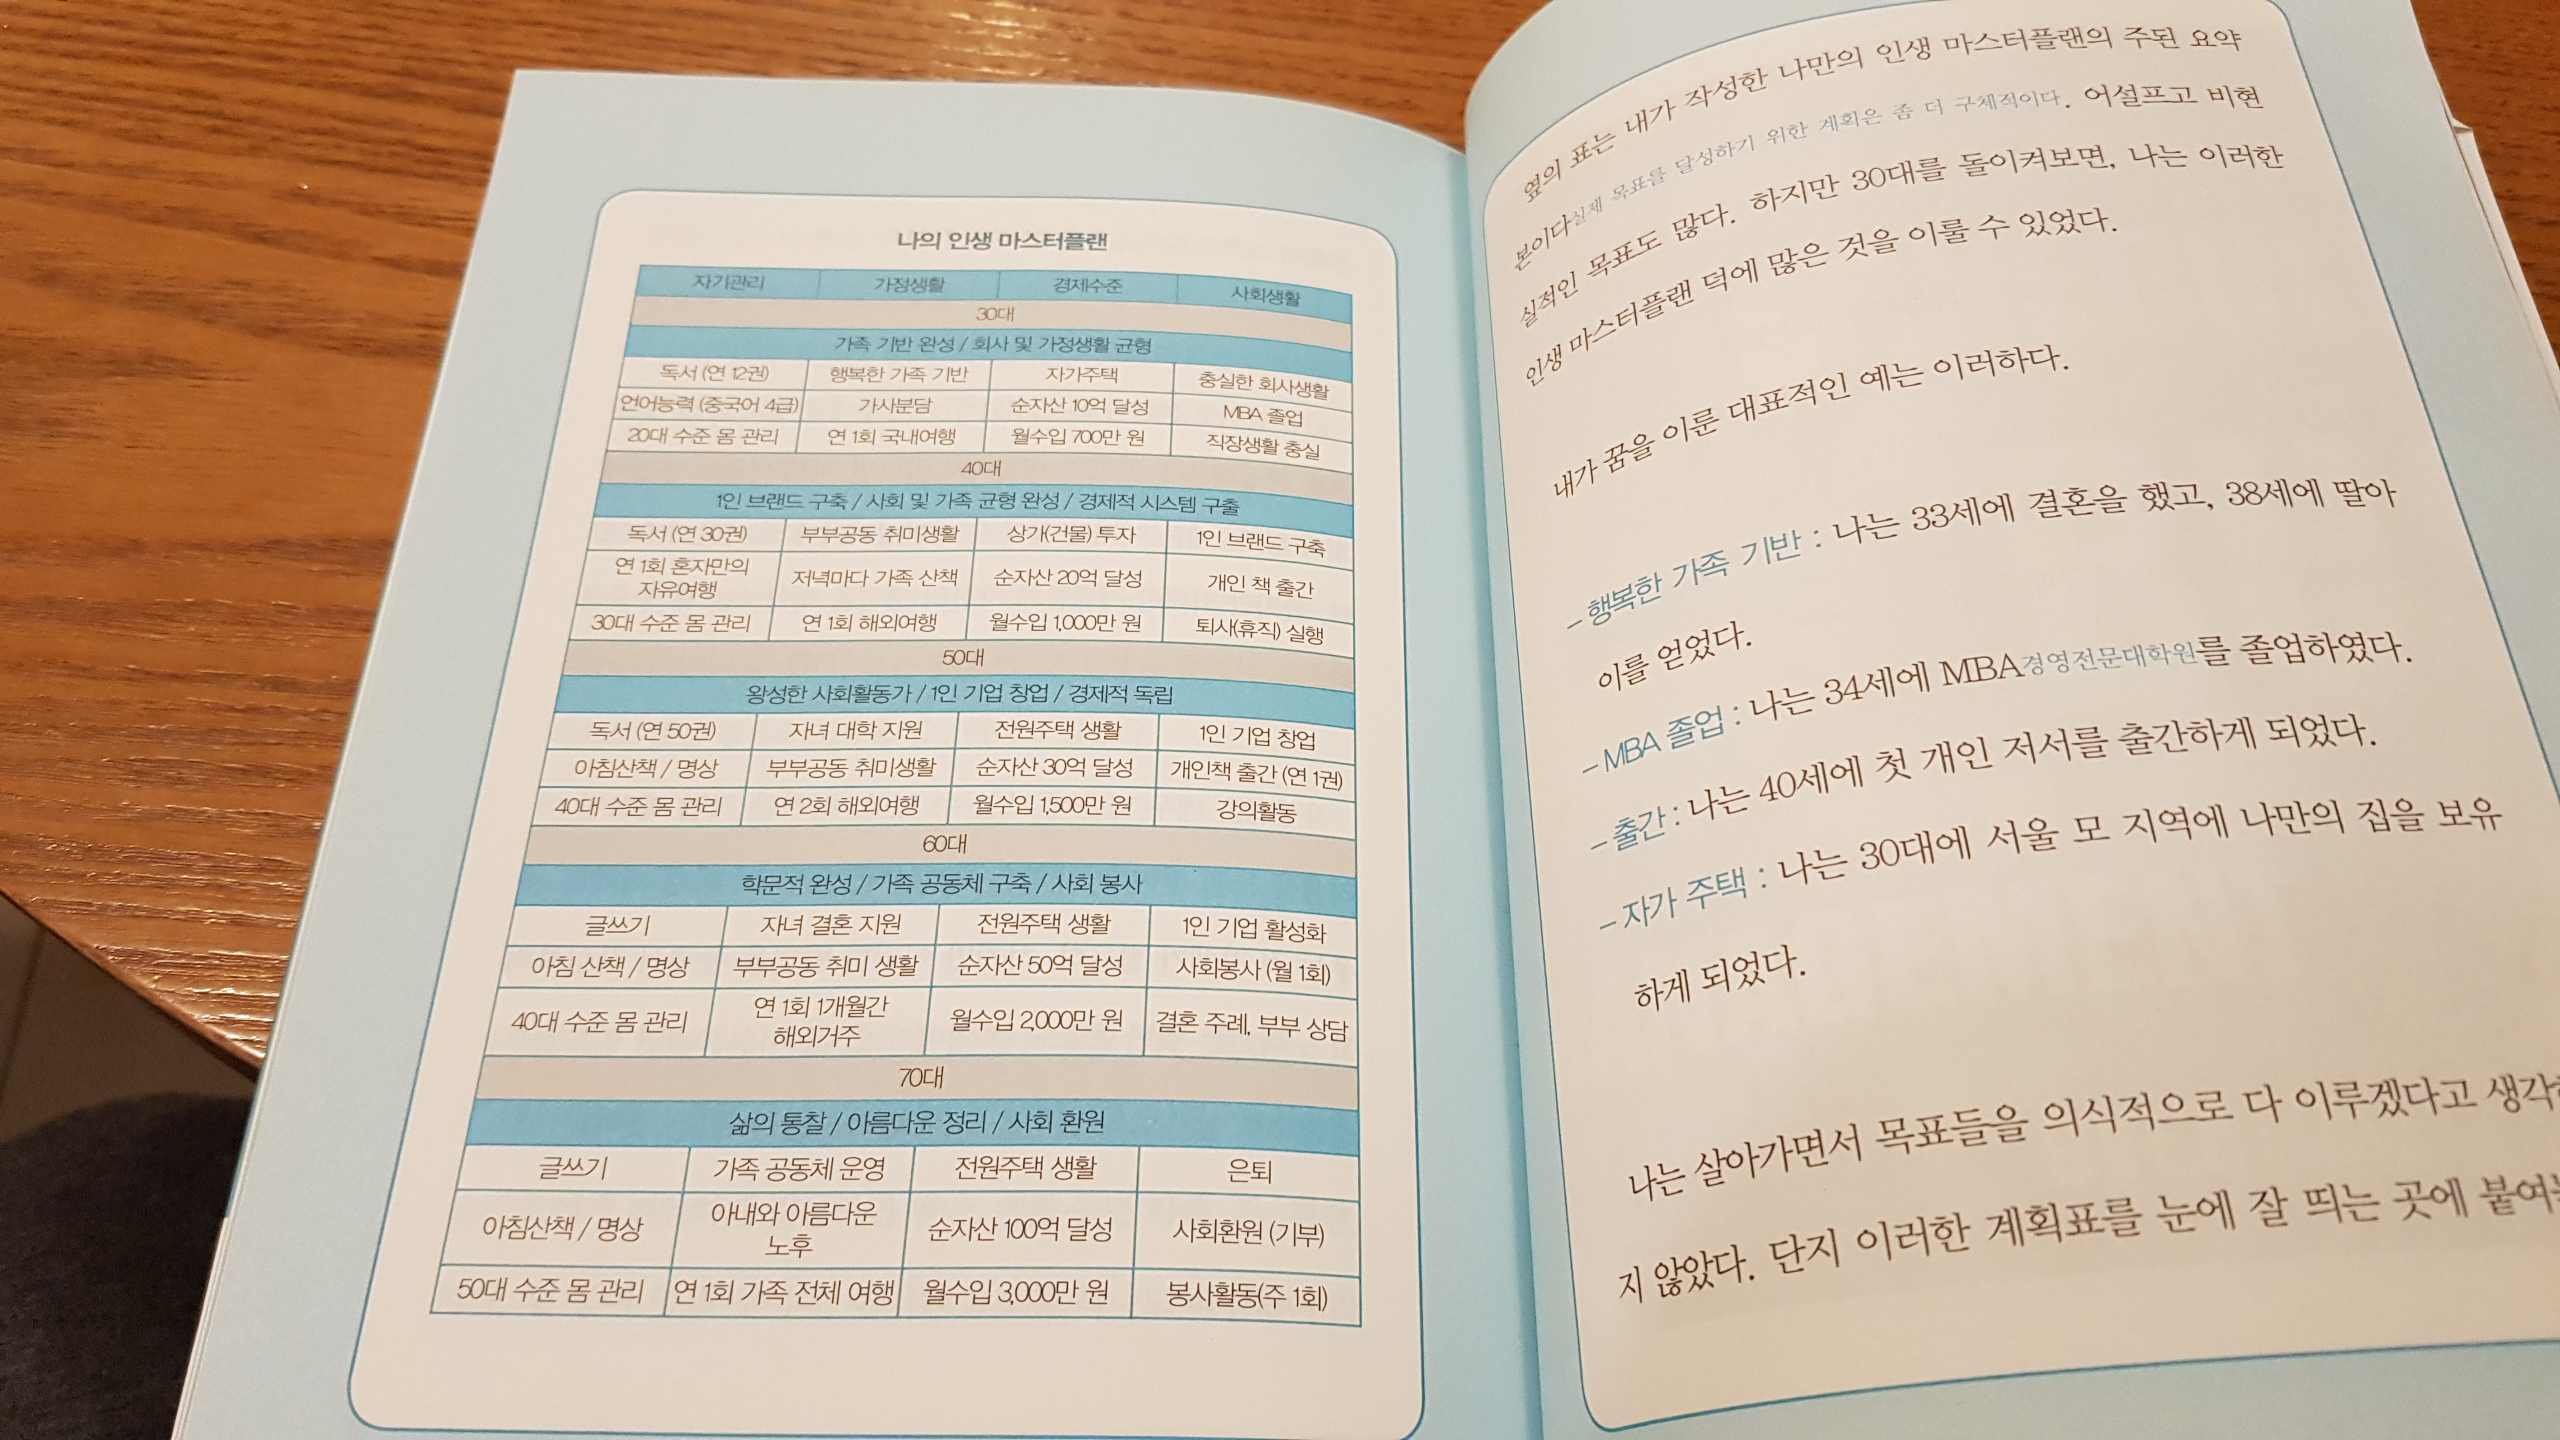 나의 인생 마스터플랜
자기관리 가정생활 경제수준 사회생활
30대
가족 기반 완성 / 회사 및 가정생활 균형
독서 (연 12권) 행복한 가족 기반 자가주택 충실한 회사생활
언어능력 (중국어 4급) 가사분담 순자산 10억 달성 MBA 졸업
20대 수준 몸 관리 연 1회 국내여행 월수입 700만 원 직장생활 충실
40대
1인 브랜드 구축 / 사회 및 가족 균형 완성 / 경제적 시스템 구출
독서 (연 30권) 부부공동 취미생활 상가(건물) 투자 1인 브랜드 구축
연 1회 혼자만의
자유여행 저녁마다 가족 산책 순자산 20억 달성 개인 책 출간
30대 수준 몸 관리 연 1회 해외여행 월수입 1,000만 원 퇴사(휴직) 실행
50대
왕성한 사회활동가 / 1인 기업 창업 / 경제적 독립
독서 (연 50권) 자녀 대학 지원 전원주택 생활 1인 기업 창업
아침산책 / 명상 부부공동 취미생활 순자산 30억 달성 개인책 출간 (연 1권)
40대 수준 몸 관리 연 2회 해외여행 월수입 1,500만 원 강의활동
60대
학문적 완성 / 가족 공동체 구축 / 사회 봉사
글쓰기 자녀 결혼 지원 전원주택 생활 1인 기업 활성화
아침 산책 / 명상 부부공동 취미 생활 순자산 50억 달성 사회봉사 (월 1회)
40대 수준 몸 관리 연 1회 1개월간
해외거주 월수입 2,000만 원 결혼 주례, 부부 상담
70대
삶의 통찰 / 아름다운 정리 / 사회 환원
글쓰기 가족 공동체 운영 전원주택 생활 은퇴
아침산책 / 명상 아내와 아름다운
노후 순자산 100억 달성 사회환원 (기부)
50대 수준 몸 관리 연 1회 가족 전체 여행 월수입 3,000만 원 봉사활동(주 1회)
옆의 표는 내가 작성한 나만의 인생 마스터플랜의 주된 요약
본이다실제 목표를 달성하기 위한 계획은 좀 더 구체적이다. 어설프고 비현
실적인 목표도 많다. 하지만 30대를 돌이켜보면, 나는 이러한
인생 마스터플랜 덕에 많은 것을 이룰 수 있었다.
내가 꿈을 이룬 대표적인 예는 이러하다.
– 행복한 가족 기반 : 나는 33세에 결혼을 했고, 38세에 딸아
이를 얻었다.
– MBA 졸업 : 나는 34세에 MBA경영전문대학원를 졸업하였다.
– 출간 : 나는 40세에 첫 개인 저서를 출간하게 되었다.
– 자가 주택 : 나는 30대에 서울 모 지역에 나만의 집을 보유
하게 되었다.
나는 살아가면서 목표들을 의식적으로 다 이루겠다고 생각
지 않았다. 단지 이러한 계획표를 눈에 잘 띄는 곳에 붙여